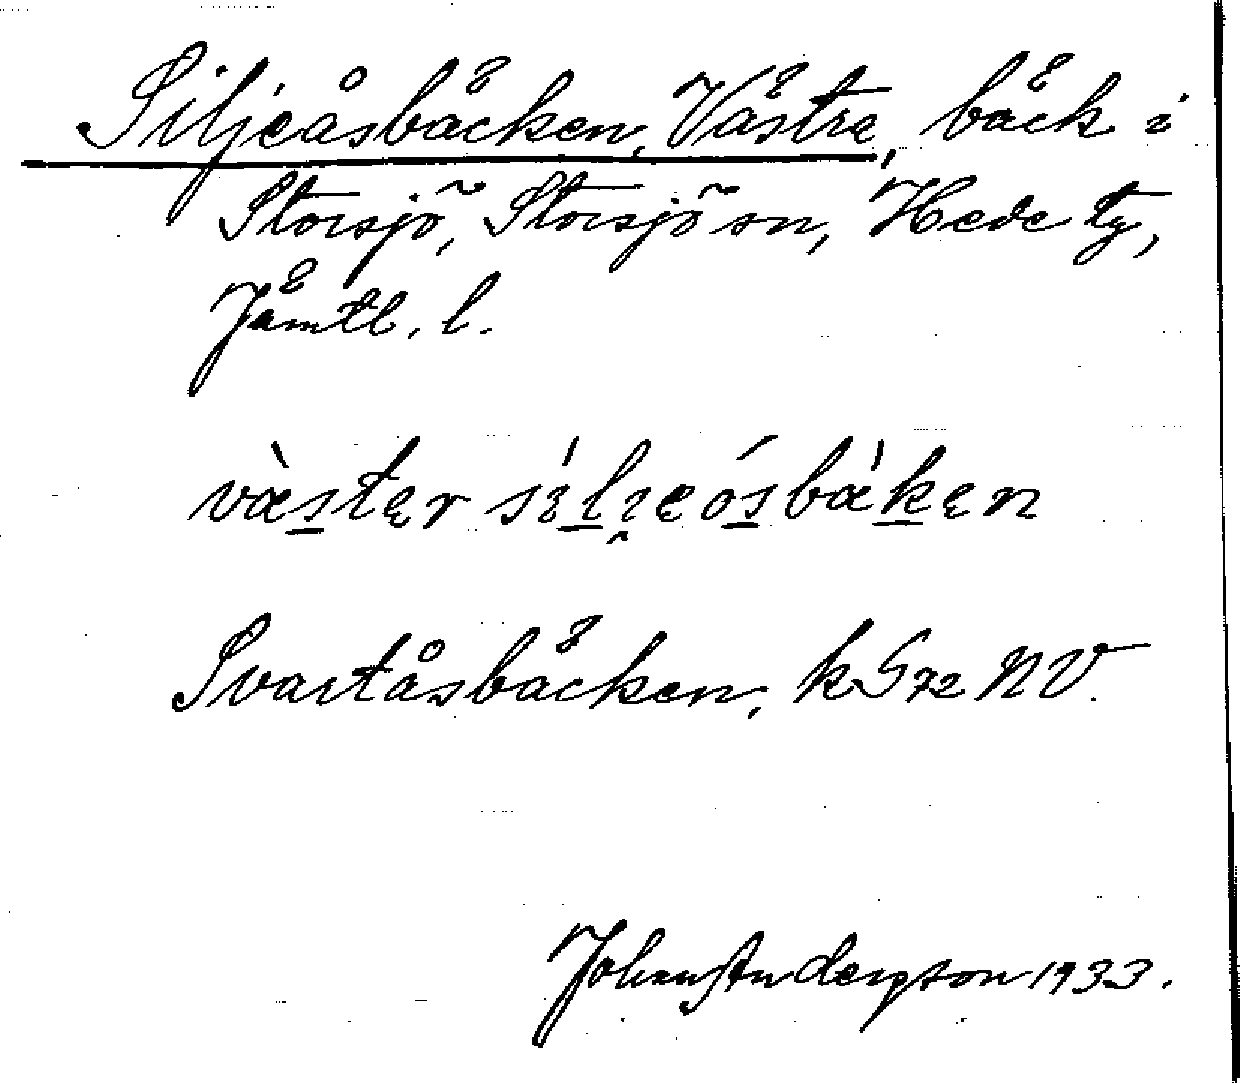 Siljeåsbäcken, Västra, bäck i
Storsjö, Storsjö sn, Hede tg,
Jämtl. l.
väster siljeåsbäken
Svartåsbäcken, kS72 NV.
Johan Anderson 1933.